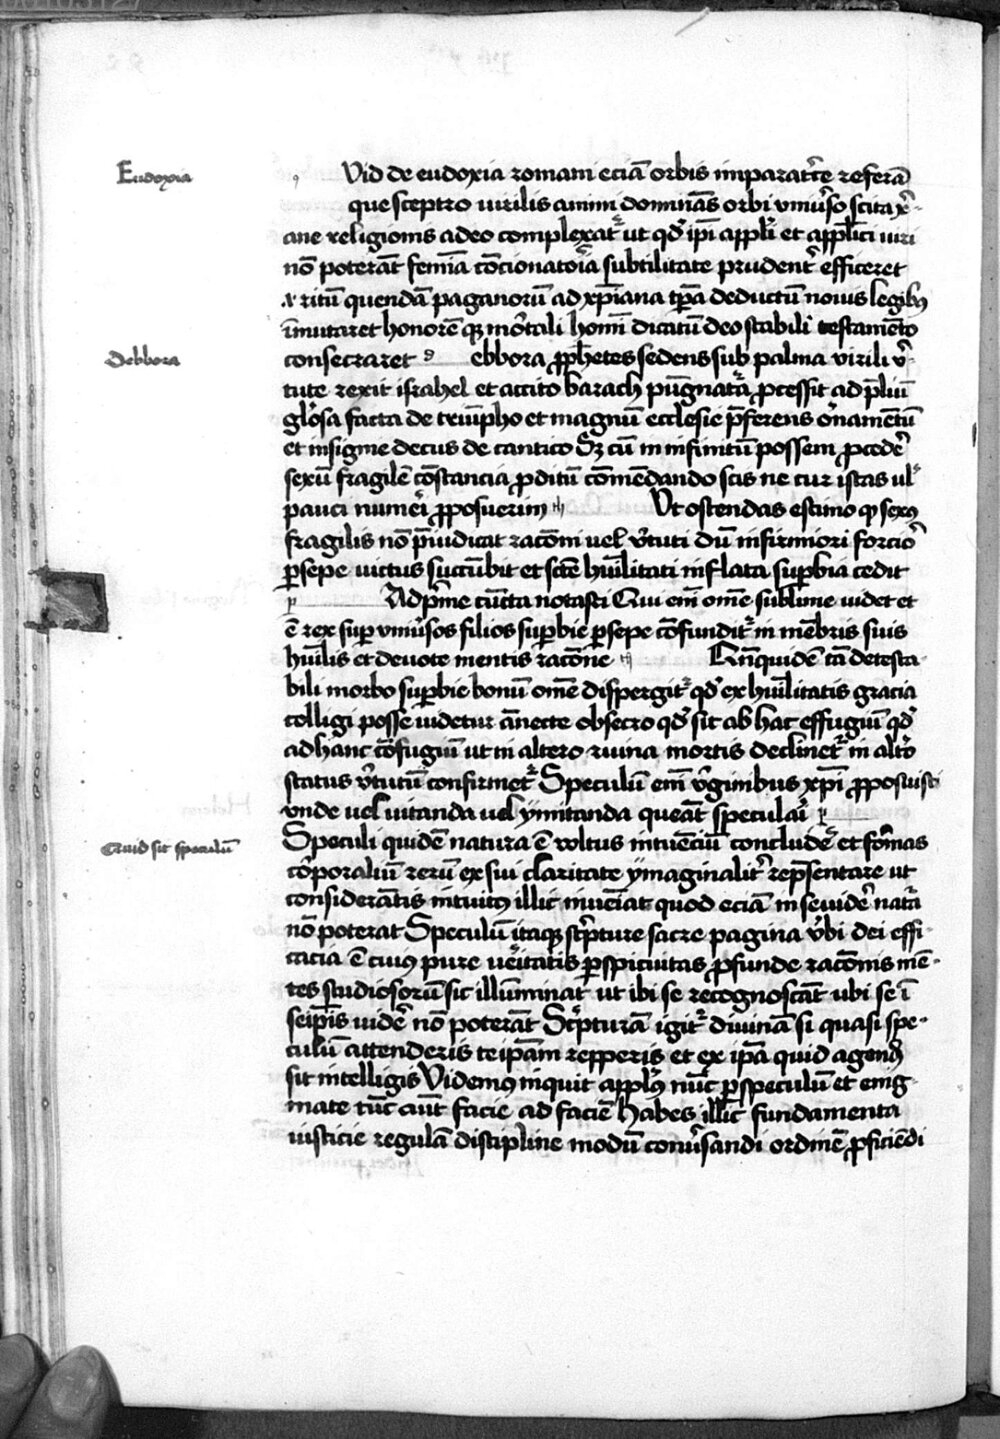 Eudoxia
vid de eudoxia romani eciā orbis imparatᵉce referā
que sceptro uirilis animi dominās orbi vniuᵉso scita xᵉ-
ane religionis adeo complexatᵉ ut qd̄ ip̄i appl̄i et appl̄ici uiri
nō poterāt femīa cōcionatoīa subtilitate prudentᵉ efficeret
ritū quendā paganorū ad xp̄iana tp̄a deductū nouis legibꝰ
īmutaret honorēqꝫ moᵉtali homī dicatū deo stabili testamēto
Debbora
consecraret ebbora ꝓph̄etes sedens sub palma virili vᵉ-
tute rexit israhel et accito barach pugnatᵃ ꝓcessit ad p̄liū
glōsa facta de triūpho et magnū ecclesie p̄ferens oᵉnamētū
et insigne decus de cantico Sꝫ cū in infinitū possem ꝓcedeᵉ
sexū fragilē cōstancia ꝓditū cōmēdando scis ne cur istas ul'
pauci numeᵉi ꝓposuerim Vt ostendas estimo ꝙ sexꝰ
fragilis nō p̄iudicat racōni uel vᵉtuti dū infirmiori forcioᵉ
ꝑsepe uictus succūbit et scē hūilitati inflata suꝑbia cedit
Ad p̄me cūcta notasti Qui em̄ om̄e sublime uidet et
ē rex suꝑ vniuᵉsos filios suꝑbie ꝑsepe cōfunditᵉ in mēbris suis
hūilis et deuote mentis racōne Qn̄quidē tā detesta-
bili morbo suꝑbie bonū om̄e dispergitᵉ qd̄ ex hūilitatis gracia
colligi posse uidetur annecte obsecro qd̄ sit ab hac effugiū qd̄
ad hanc cōfugiū ut in altero ruina mortis declinetᵉ in altᵉo
status vᵉtutū confirmetᵉ Speculū em̄ vᵉginibus xp̄i ꝓposuisti
vnde uel uitanda uel ymitanda queāt speculaiᵉ
Quid sit speculū
Speculi quidē natura ē voltus intuēciū concludeᵉ et foᵉmas
coᵉporaliū rerū ex sui claritate ymaginalitᵉ rep̄sentare ut
considerātis intuitꝰ illic inueniat quod eciā in se uideᵉ natᵃ
nō poterat Speculū itaqꝫ scᵉpture sacre pagina vᵉbi dei effi-
cacia ē cuiꝰ pure ueᵉitatis ꝑspicuitas ꝓfunde racōnis mē-
tes studiosorū sic illūminat ut ibi se recognoscāt ubi se ī
seip̄is uideᵉ nō poterāt Scᵉpturā igitᵉ diuinā si quasi spe-
culū attenderis teip̄am repperis et ex ip̄a quid agendū
sit intelligis Videmꝰ inquit applꝰ nūc ꝑ speculū et enig-
mate tūc aūt facie ad faciē Habes illic fundamenta
iusticie regulā discipline modū conuᵉsandi ordinē ꝓficiēdi